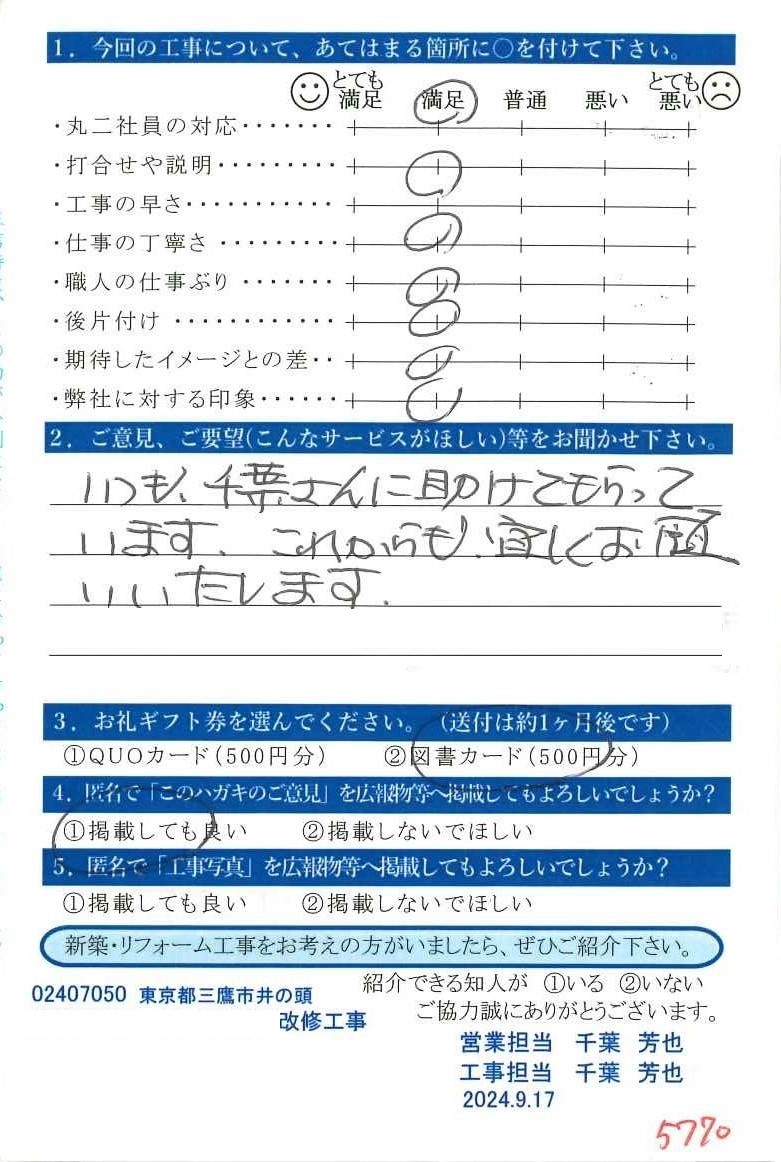 1．今回の工事について、あてはまる箇所に○を付けて下さい。
とても満足 満足 普通 悪い とても悪い
・丸二社員の対応・・・・・・・
・打合せや説明・・・・・・・・・
・工事の早さ・・・・・・・・・・・
・仕事の丁寧さ ・・・・・・・・・
・職人の仕事ぶり ・・・・・・・
・後片付け ・・・・・・・・・・・・
・期待したイメージとの差・・
・弊社に対する印象・・・・・・
2．ご意見、ご要望(こんなサービスがほしい)等をお聞かせ下さい。
いつも、千葉さんに助けてもらって
います。これからも、宜しくお願
いいたします.
3．お礼ギフト券を選んでください。（送付は約1ヶ月後です）
①QUOカード(500円分) ②図書カード(500円分)
4．匿名で「このハガキのご意見」を広報物等へ掲載してもよろしいでしょうか？
①掲載しても良い ②掲載しないでほしい
5．匿名で「工事写真」を広報物等へ掲載してもよろしいでしょうか？
①掲載しても良い ②掲載しないでほしい
新築・リフォーム工事をお考えの方がいましたら、ぜひご紹介下さい。
紹介できる知人が ①いる ②いない
02407050 東京都三鷹市井の頭
ご協力誠にありがとうございます。
改修工事
営業担当 千葉 芳也
工事担当 千葉 芳也
2024.9.17
5770